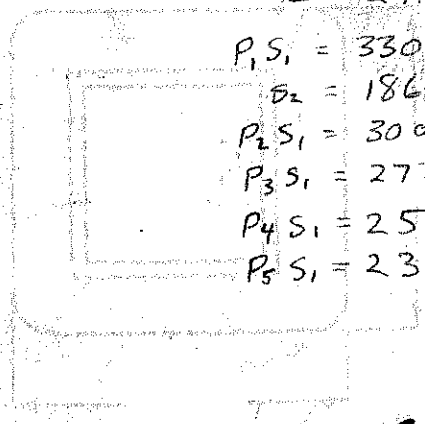 P₁ S₁ = 330
S₂ = 186
P₂ S₁ = 300
P₃ S₁ = 27
P₄ S₁ = 25
P₅ S₁ = 23